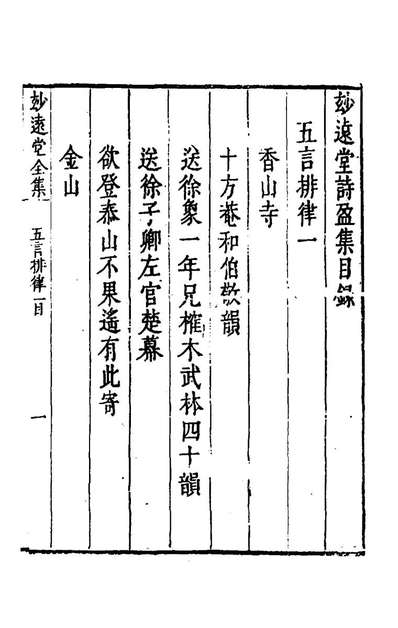 玅遠堂詩盈集目錄
五言排律一
香山寺
十方菴和伯敬韻
送徐象一年兄榷木武林四十韻
送徐子卿左官楚幕
欲登泰山不果遙有此寄
金山
玅遠堂全集
五言排律一目
一